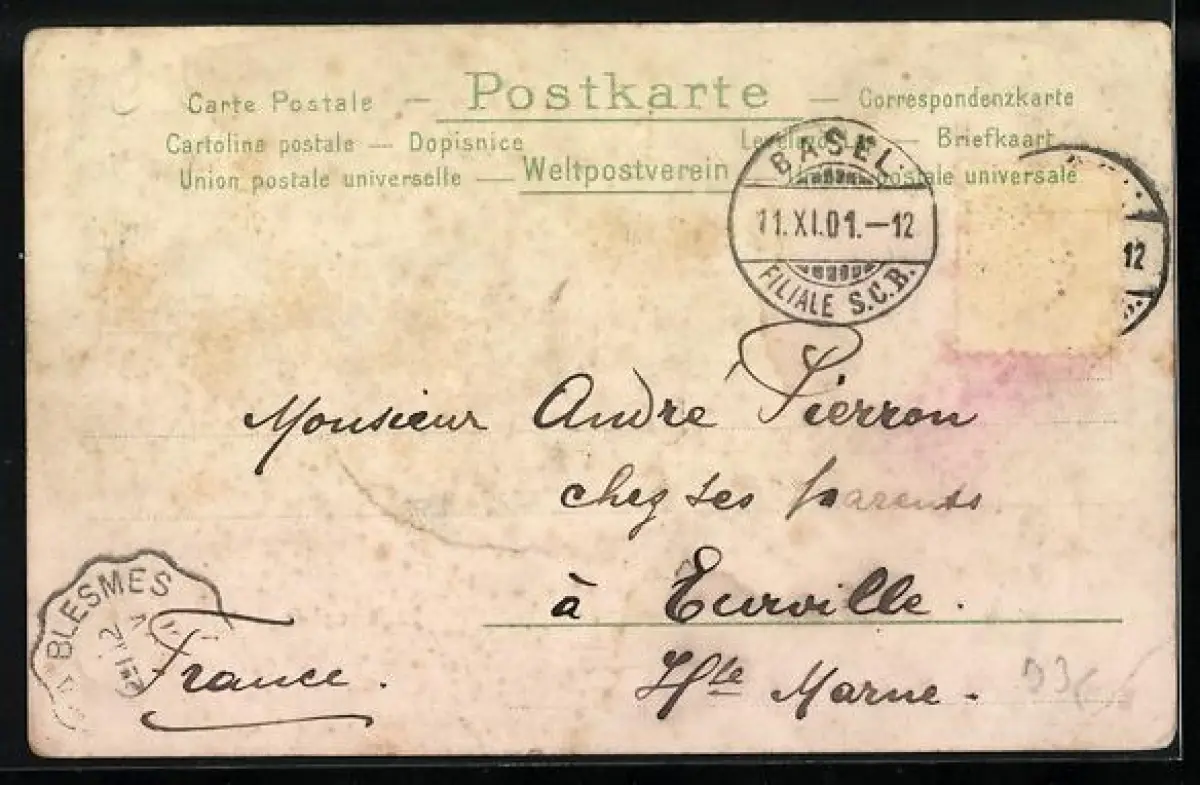 Carte Postale — Postkarte — Correspondenzkarte
Cartolina postale — Dopisnice — Briefkaart
Union postale universelle — Weltpostverein — postale universale
BASEL
11.XI.01.—12
FILIALE S.C.B.
12
Monsieur André Pierron
chez ses parents
à Eurville.
Hte Marne.
France.
BLESMES